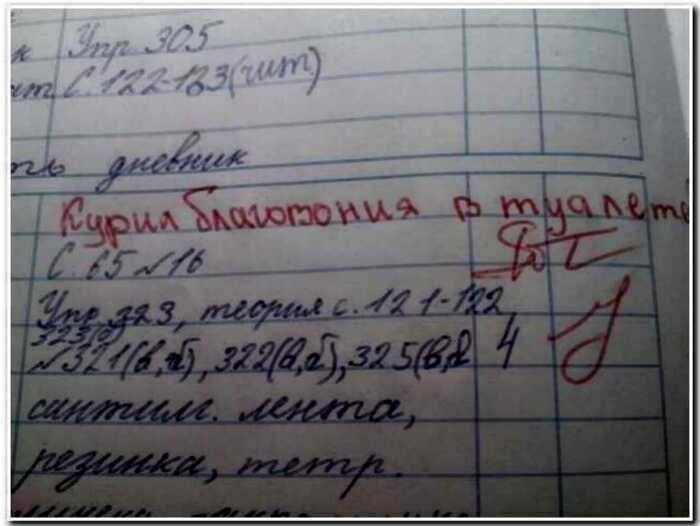 к Упр 305
ит С. 122-123(чит)
ть дневник
Курил благовония в туалете
С. 65 №16
Упр 323, теория с. 121-122
323(б)
№321(в,г), 322(в,г), 325(в, 4
сантим. лента,
резинка, тетр.